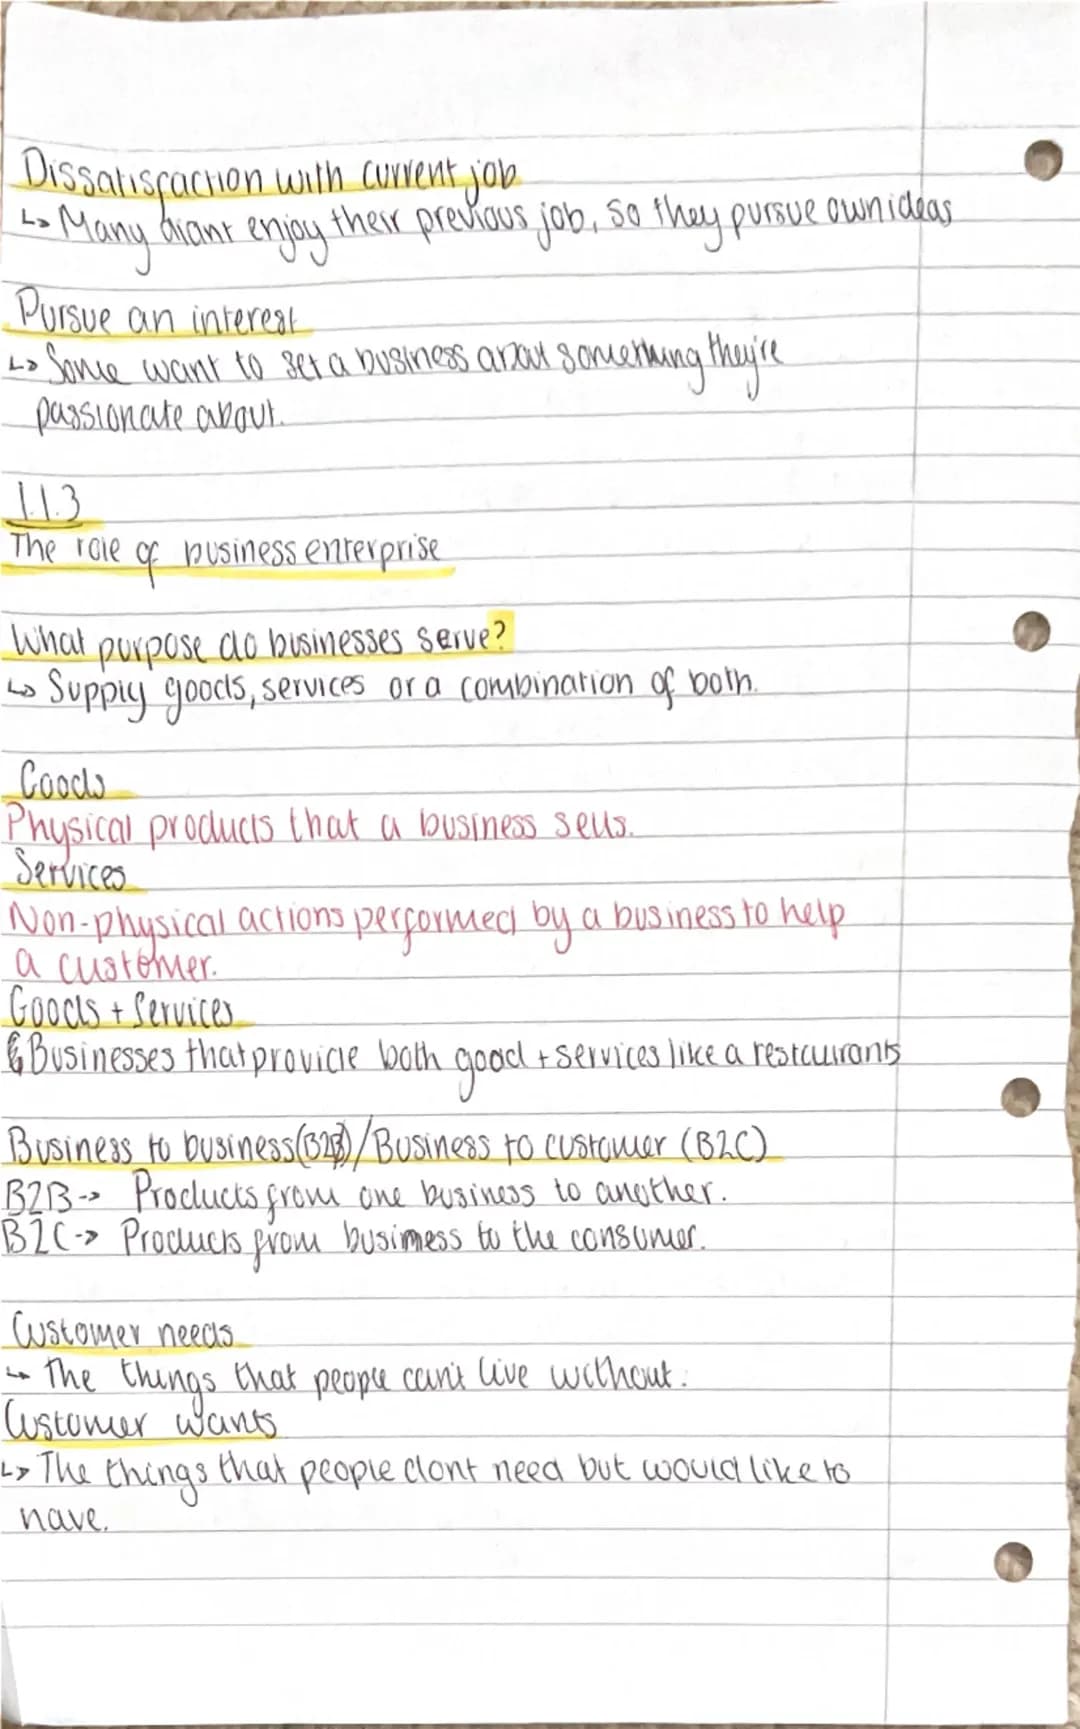 Dissatisfaction with current job
↳ Many didnt enjoy their previous job, so they pursue own ideas
Pursue an interest
↳ Some want to set a business about something they're
passionate about.
1.1.3
The role of business enterprise
What purpose do businesses serve?
↳ Supply goods, services or a combination of both.
Goods
Physical products that a business sells.
Services
Non-physical actions performed by a business to help
a customer.
Goods + Services
Businesses that provide both good + services like a restaurants
Business to business (B2B) / Business to customer (B2C)
B2B -> Products from one business to another.
B2C -> Products from business to the consumer.
Customer needs
↳ The things that people can't live without.
Customer wants
↳ The things that people dont need but would like to
have.